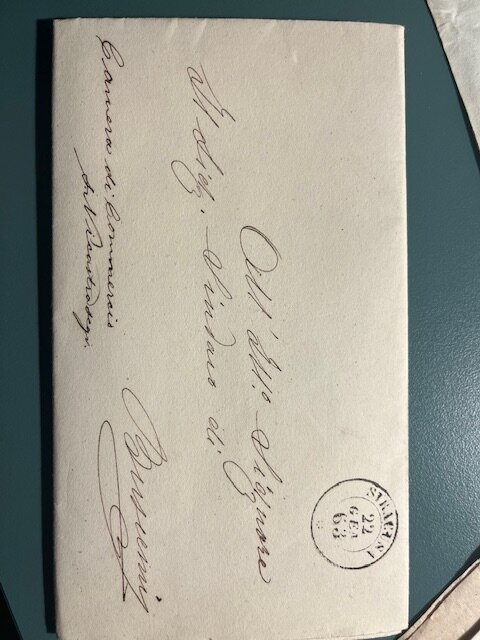 SIRACUSA
22
GEN
63
All' Ill.o Signore
Il Sig. Sindaco di
Buscemi
Camera di Commercio